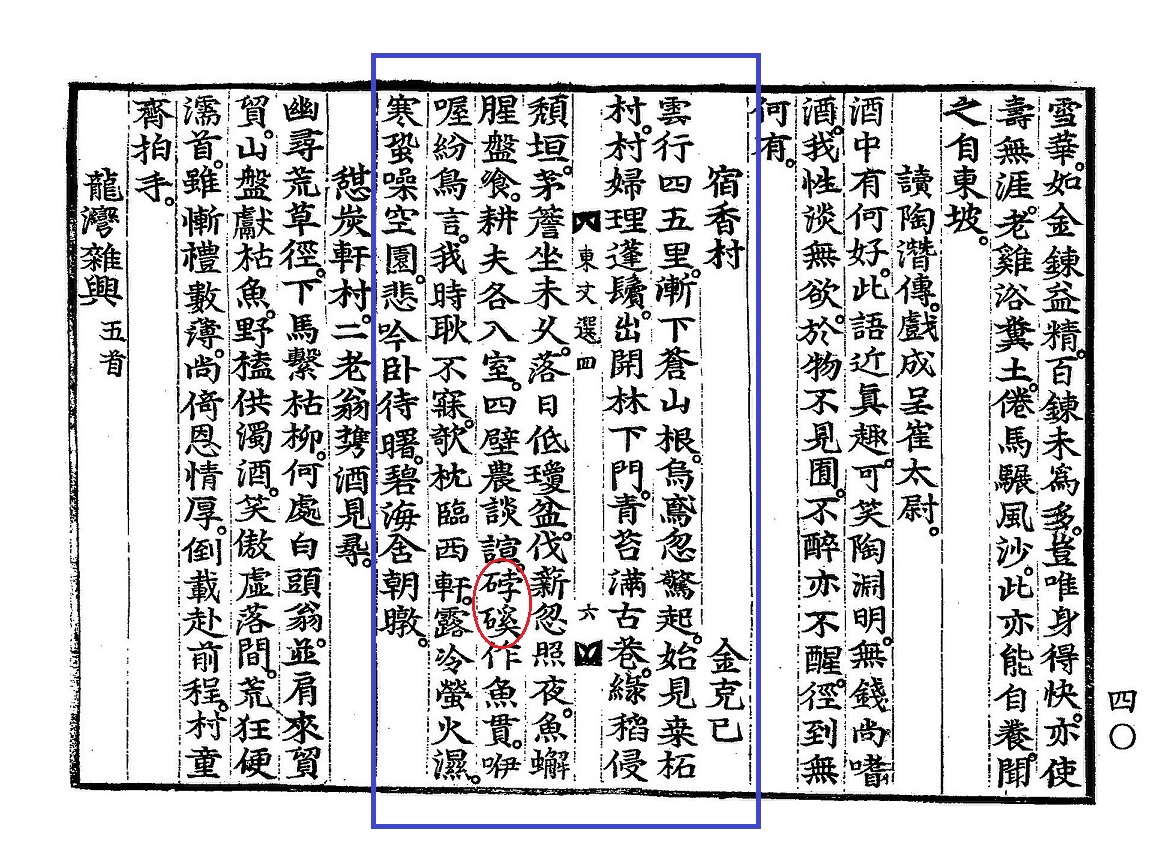 四〇
雪華。如金鍊益精。百鍊未爲多。豈唯身得快。亦使
壽無涯。老雞浴糞土。倦馬風沙。此亦能自養。聞
之自東坡。
讀陶潛傳。戲成呈崔太尉。
酒中有何好。此語近眞趣。可笑陶淵明。無錢尚嗜
酒。我性淡無欲。於物不見囿。不醉亦不醒。徑到無
何有。
宿香村 金克已
雲行四五里。漸下蒼山根。烏鳶忽驚起。始見桒柘
村。村婦理蓬鬢。出開林下門。青苔滿古巷。綠稻侵
東文選四 六
頹垣。茅簷坐未乆。落日低瓊盆。伐薪忽照夜。魚蠏
腥盤飱。耕夫各入室。四壁農談諠。磎作魚貫。咿
喔紛鳥言。我時耿不寐。欹枕臨西軒。露冷螢火濕。
寒蛩噪空園。悲吟卧待曙。碧海含朝暾。
憇炭軒村。二老翁携酒見尋。
幽尋荒草徑。下馬繫枯柳。何處白頭翁。並肩來貿
貿。山盤獻枯魚。野榼供濁酒。笑傲虛落間。荒狂便
濡首。雖慚禮數薄。尚倚恩情厚。倒載赴前程。村童
齊拍手。
龍灣雜興 五首